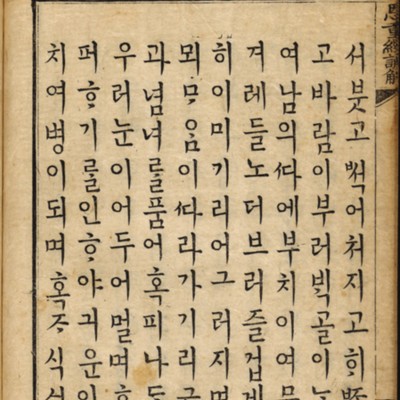 恩重經諺解
서븟고ᄡᅥᆨ어처지고ᄒᆡ
고바람이부러ᄇᆡᆨ골이
여남의ᄯᅡ에부치이여
겨레들노더브러즐겁게
히이미기리어그러지며
뫼ᄆᆞ음이ᄯᅡ라가기리
과념녀를품어혹피나
우러눈이어두어멀며
퍼ᄒᆞ기를인ᄒᆞ야긔운
치여병이되며혹ᄌᆞ식